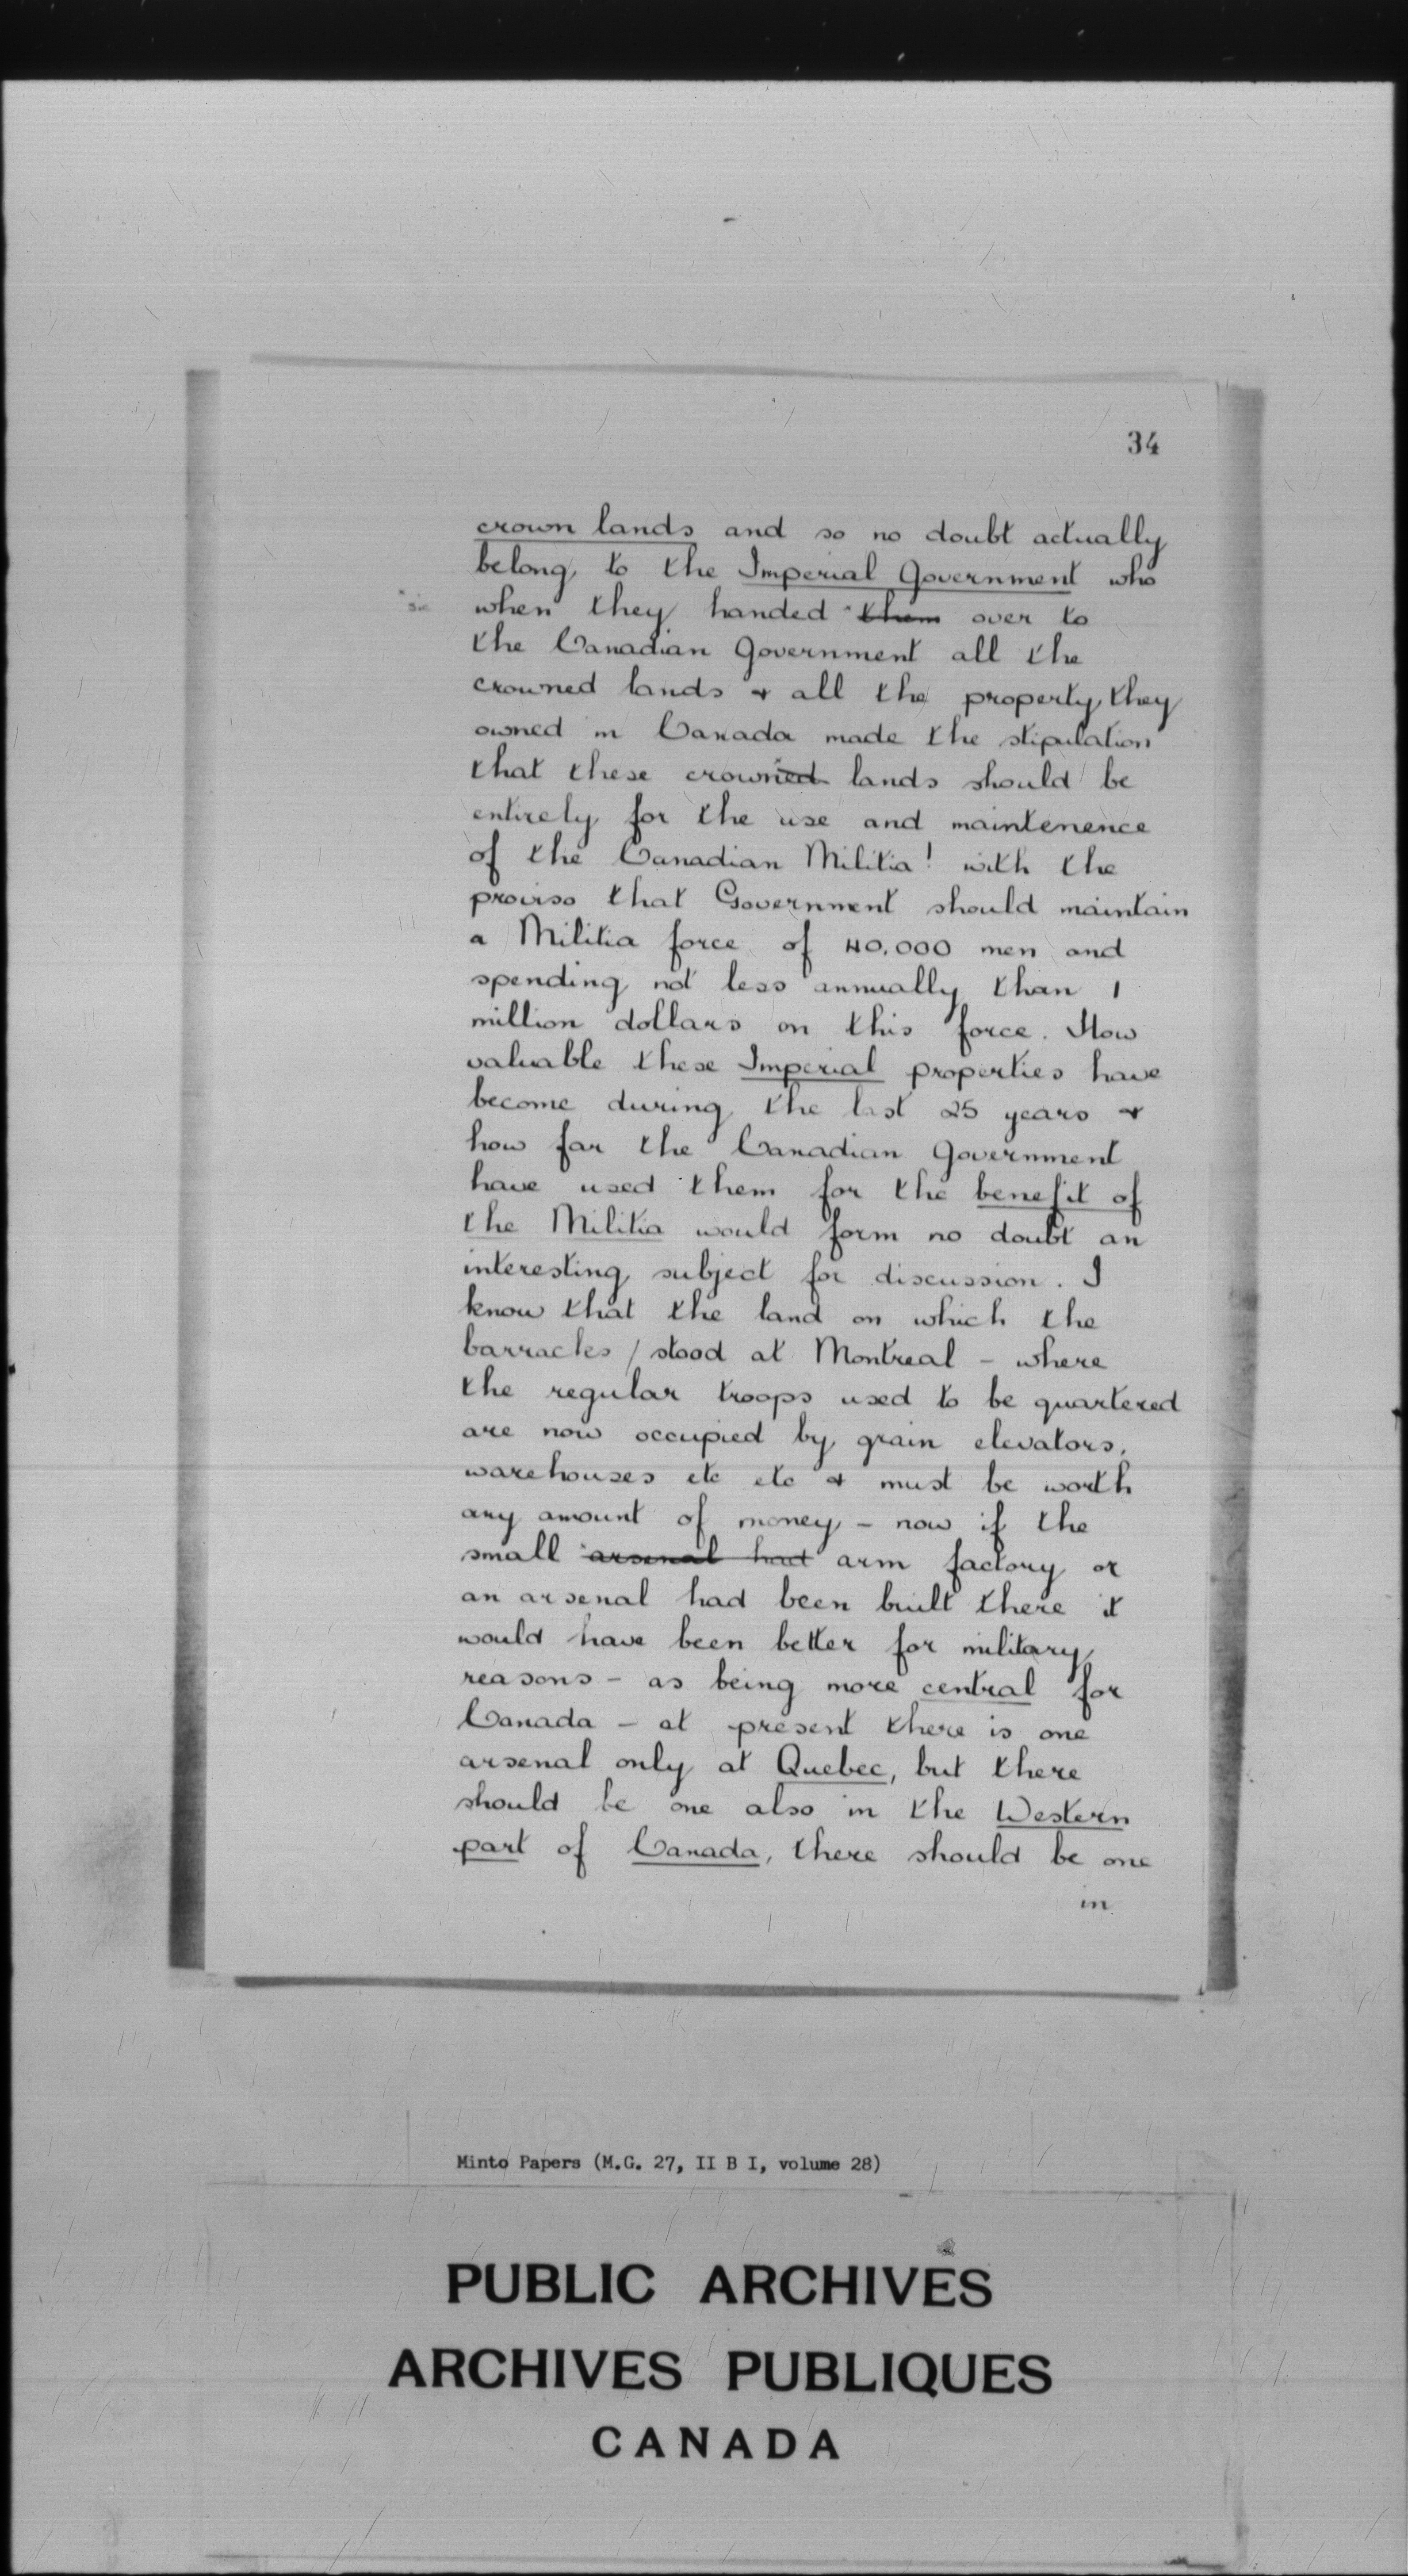 34
crown lands and so no doubt actually
belong to the Imperial Government who
sic when they handed them over to
the Canadian Government all the
crowned lands & all the property they
owned in Canada made the stipulation
that these crowned lands should be
entirely for the use and maintenence
of the Canadian Militia! with the
proviso that Government should maintain
a Militia force of 40,000 men and
spending not less annually than 1
million dollars on this force. How
valuable these Imperial properties have
become during the last 25 years &
how far the Canadian Government
have used them for the benefit of
the Militia would form no doubt an
interesting subject for discussion. I
know that the land on which the
barracks / stood at Montreal - where
the regular troops used to be quartered
are now occupied by grain elevators,
warehouses etc etc & must be worth
any amount of money - now if the
small arsenal had arm factory or
an arsenal had been built there it
would have been better for military
reasons - as being more central for
Canada - at present there is one
arsenal only at Quebec, but there
should be one also in the Western
part of Canada, there should be one
in
Minto Papers (M.G. 27, II B I, volume 28)
PUBLIC ARCHIVES
ARCHIVES PUBLIQUES
CANADA